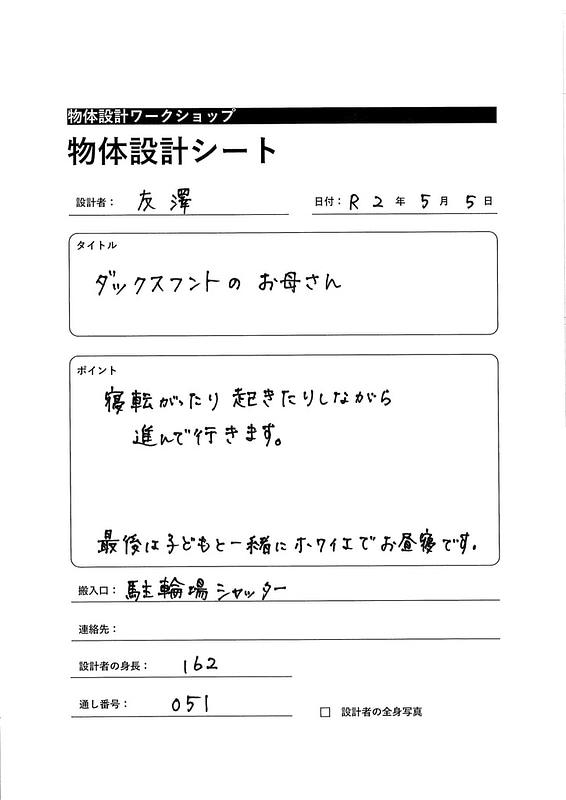 物体設計ワークショップ
物体設計シート
設計者： 友澤
日付： R 2 年 5 月 5 日
タイトル
ダックスフントの お母さん
ポイント
寝転がったり 起きたりしながら
進んで行きます。
最後は子どもと一緒にホワイエでお昼寝です.
搬入口： 駐輪場シャッター
連絡先：
設計者の身長： 162
通し番号： 051
□ 設計者の全身写真